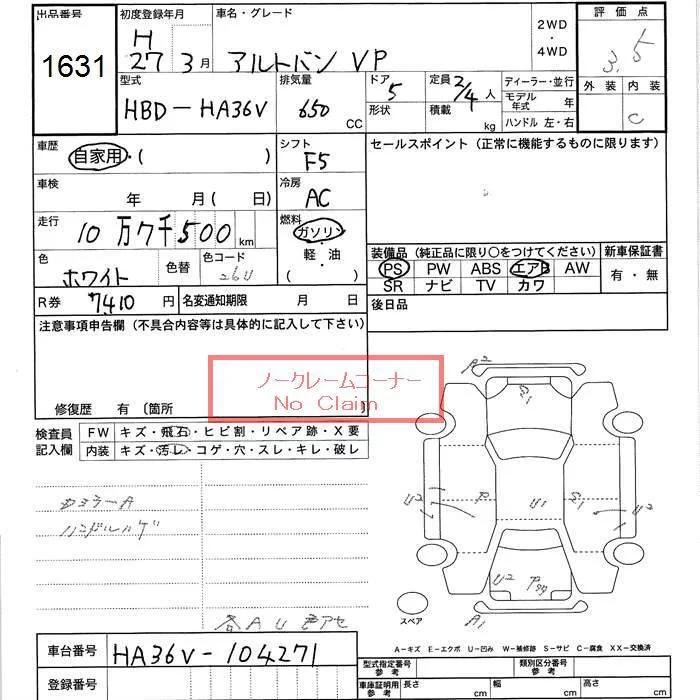 出品番号 初度登録年月 車名・グレード 2WD・4WD 評価点
1631 H27 3月 アルトバン VP 3.5
外装 内装
C
型式 排気量 ドア 定員 ディーラー・並行
HBD-HA36V 650 CC 5 2/4人 モデル年式 年
形状 積載 kg ハンドル 左・右
車歴 シフト セールスポイント(正常に機能するものに限ります)
自家用・( ) F5
車検 冷房
年 月( 日) AC
走行 燃料
10万7千500km ガソリン・軽・油 ( )
装備品(純正品に限り○をつけてください) 新車保証書
PS PW ABS エアB AW 有・無
SR ナビ TV カワ
色 色替 色コード
ホワイト 26U
後日品
R券 7410円 名変通知期限 月 日
注意事項申告欄(不具合内容等は具体的に記入して下さい)
ノークレームコーナー
No Claim
修復歴 有 〔箇所 〕
検査員記入欄 FW キズ・飛石・ヒビ割・リペア跡・X要
内装 キズ・汚レ・コゲ・穴・スレ・キレ・破レ
カヨラーA
ハンドルハゲ
各AU 色アセ
A2
U2 P U1 U2
U2
A1
スペア
A-キズ E-エクボ U-凹み W-補修跡 S-サビ C-腐食 XX-交換済
車台番号 HA36V-104271
登録番号
型式指定番号 参考 類別区分番号 参考
車庫証明用 参考 長さ cm 幅 cm 高さ cm